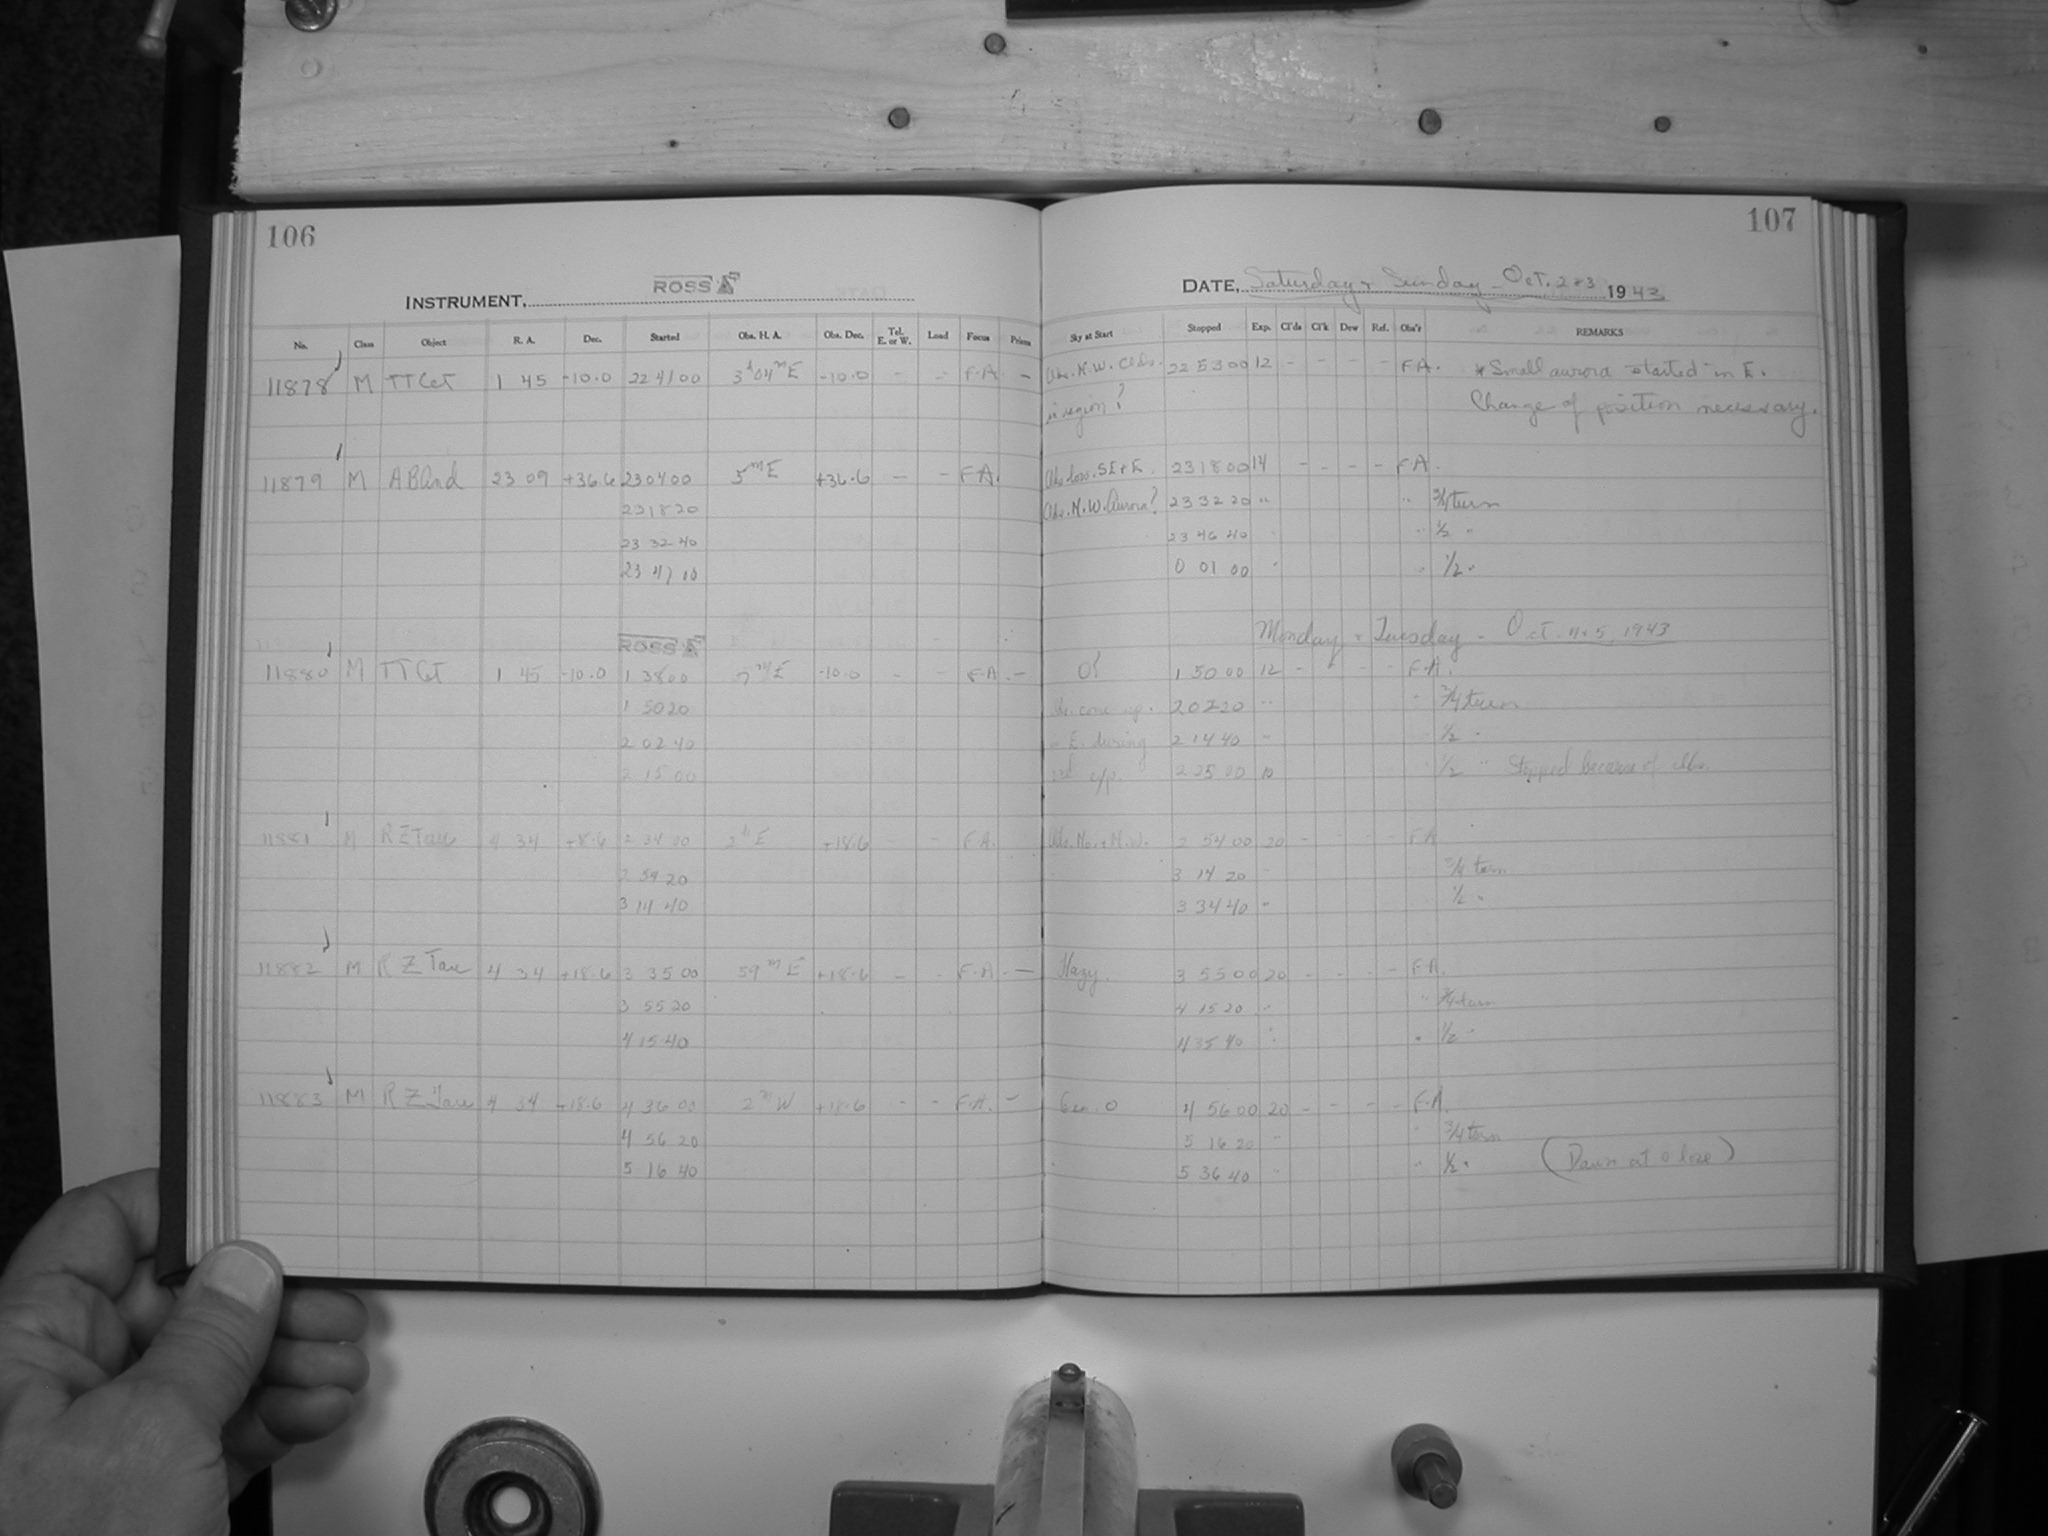 106
107
INSTRUMENT, ROSS
DATE, Saturday & Sunday - Oct. 2&3 1943
No. Class Object R. A. Dec. Started Obs. H. A. Obs. Dec. Tel. E. or W. Load Focus Prisms Sky at Start Stopped Exp. Cl'ds Cl'k Dew Ref. Obs'r REMARKS
11878 M TTCet 1 45 -10.0 22 41 00 3h04mE -10.0 - - F.A. - N.W. 22 53 00 12 - - - - F.A. * Small aurora started in E.
in region? Change of position necessary.
11879 M ABAnd 23 09 +36.6 23 04 00 5mE +36.6 - - F.A. S.E.&E. 23 18 00 14 - - - - F.A.
23 18 20 N.W. Aurora? 23 32 20 " " 3/4 turn
23 32 40 23 46 40 " " 1/2 "
23 47 00 0 01 00 " " 1/2 "
ROSS Monday & Tuesday - Oct. 4&5, 1943
11880 M TTCet 1 45 -10.0 1 38 00 7mE -10.0 - - F.A. - 0? 1 50 00 12 - - - - F.A.
1 50 20 come up. 2 02 20 " " 3/4 turn
2 02 40 in E. during 2 14 40 " " 1/2 "
2 15 00 2 25 00 10 1/2 " Stopped because of
11881 M RZTau 4 34 +18.6 2 34 00 2hE +18.6 - - F.A. No.&N.W. 2 54 00 20 - - - - F.A.
2 54 20 3 14 20 " 3/4 turn
3 14 40 3 34 40 " 1/2 "
11882 M RZTau 4 34 +18.6 3 35 00 59mE +18.6 - - F.A. - Hazy. 3 55 00 20 - - - - F.A.
3 55 20 4 15 20 " " 3/4 turn
4 15 40 4 35 40 " " 1/2 "
11883 M RZTau 4 34 +18.6 4 36 00 2mW +18.6 - - F.A. - Gen. 0 4 56 00 20 - - - - F.A.
4 56 20 5 16 20 " " 3/4 turn
5 16 40 5 36 40 " " 1/2 " (Dawn at close)